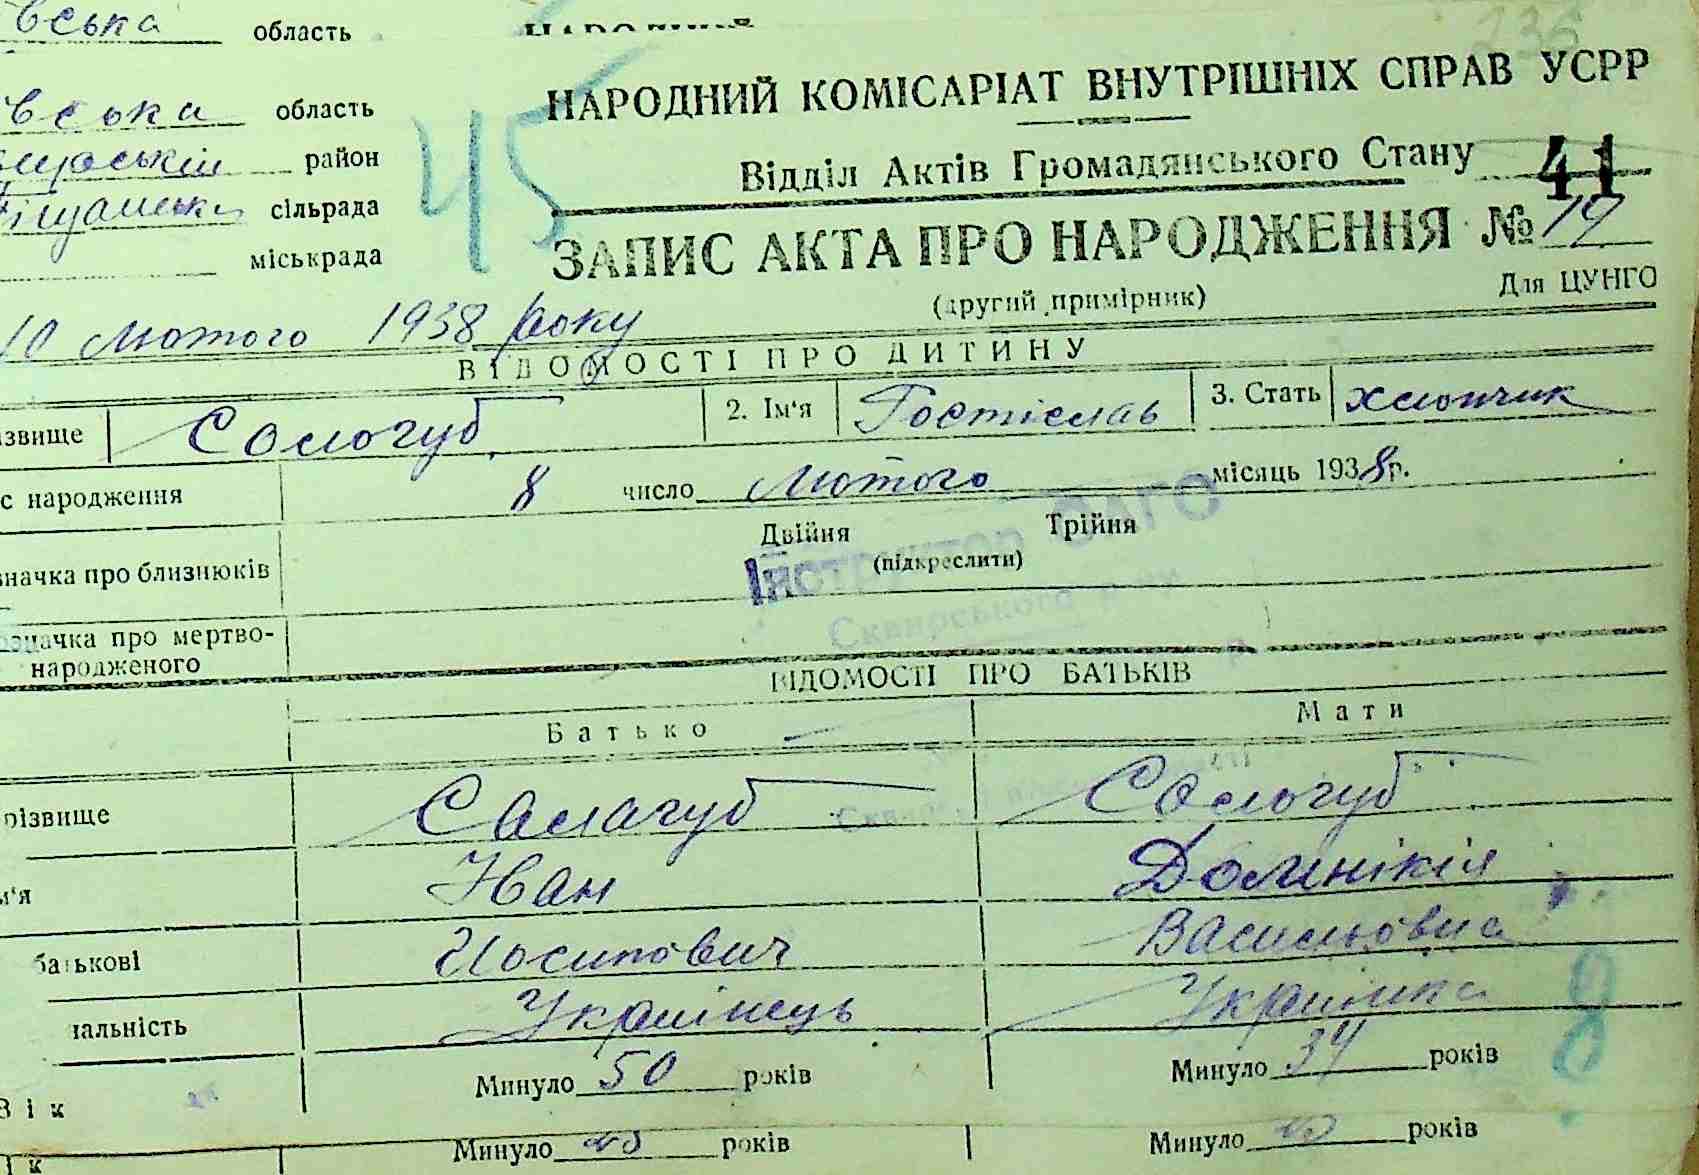 вська область
вська область
район
сільрада
міськрада
45
НАРОДНИЙ КОМІСАРІАТ ВНУТРІШНІХ СПРАВ УСРР
Відділ Актів Громадянського Стану 41
ЗАПИС АКТА ПРО НАРОДЖЕННЯ № 19
(другий примірник) Для ЦУНГО
10 Лютого 1938 року
ВІДОМОСТІ ПРО ДИТИНУ
ізвище Сологуб 2. Ім'я Ростіслав 3. Стать хлопчик
с народження 8 число Лютого місяць 1938 р.
Двійня Трійня
значка про близнюків (підкреслити)
Інструктор ОАГС
Сквирського р-ну
означка про мертво-
народженого
ВІДОМОСТІ ПРО БАТЬКІВ
Батько Мати
різвище Салагуб Сологуб
м'я Иван Домінікія
батькові Иосипович Васильовна
нальність Українець Українка
Вік Минуло 50 років Минуло 34 років
ік Минуло років Минуло років